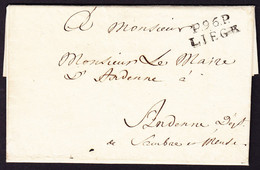 A Monsieur
P.96.P.
LIEGE
Monsieur Le Maire
D'Andenne à
Andenne Dpt
de Sambre et Meuse.